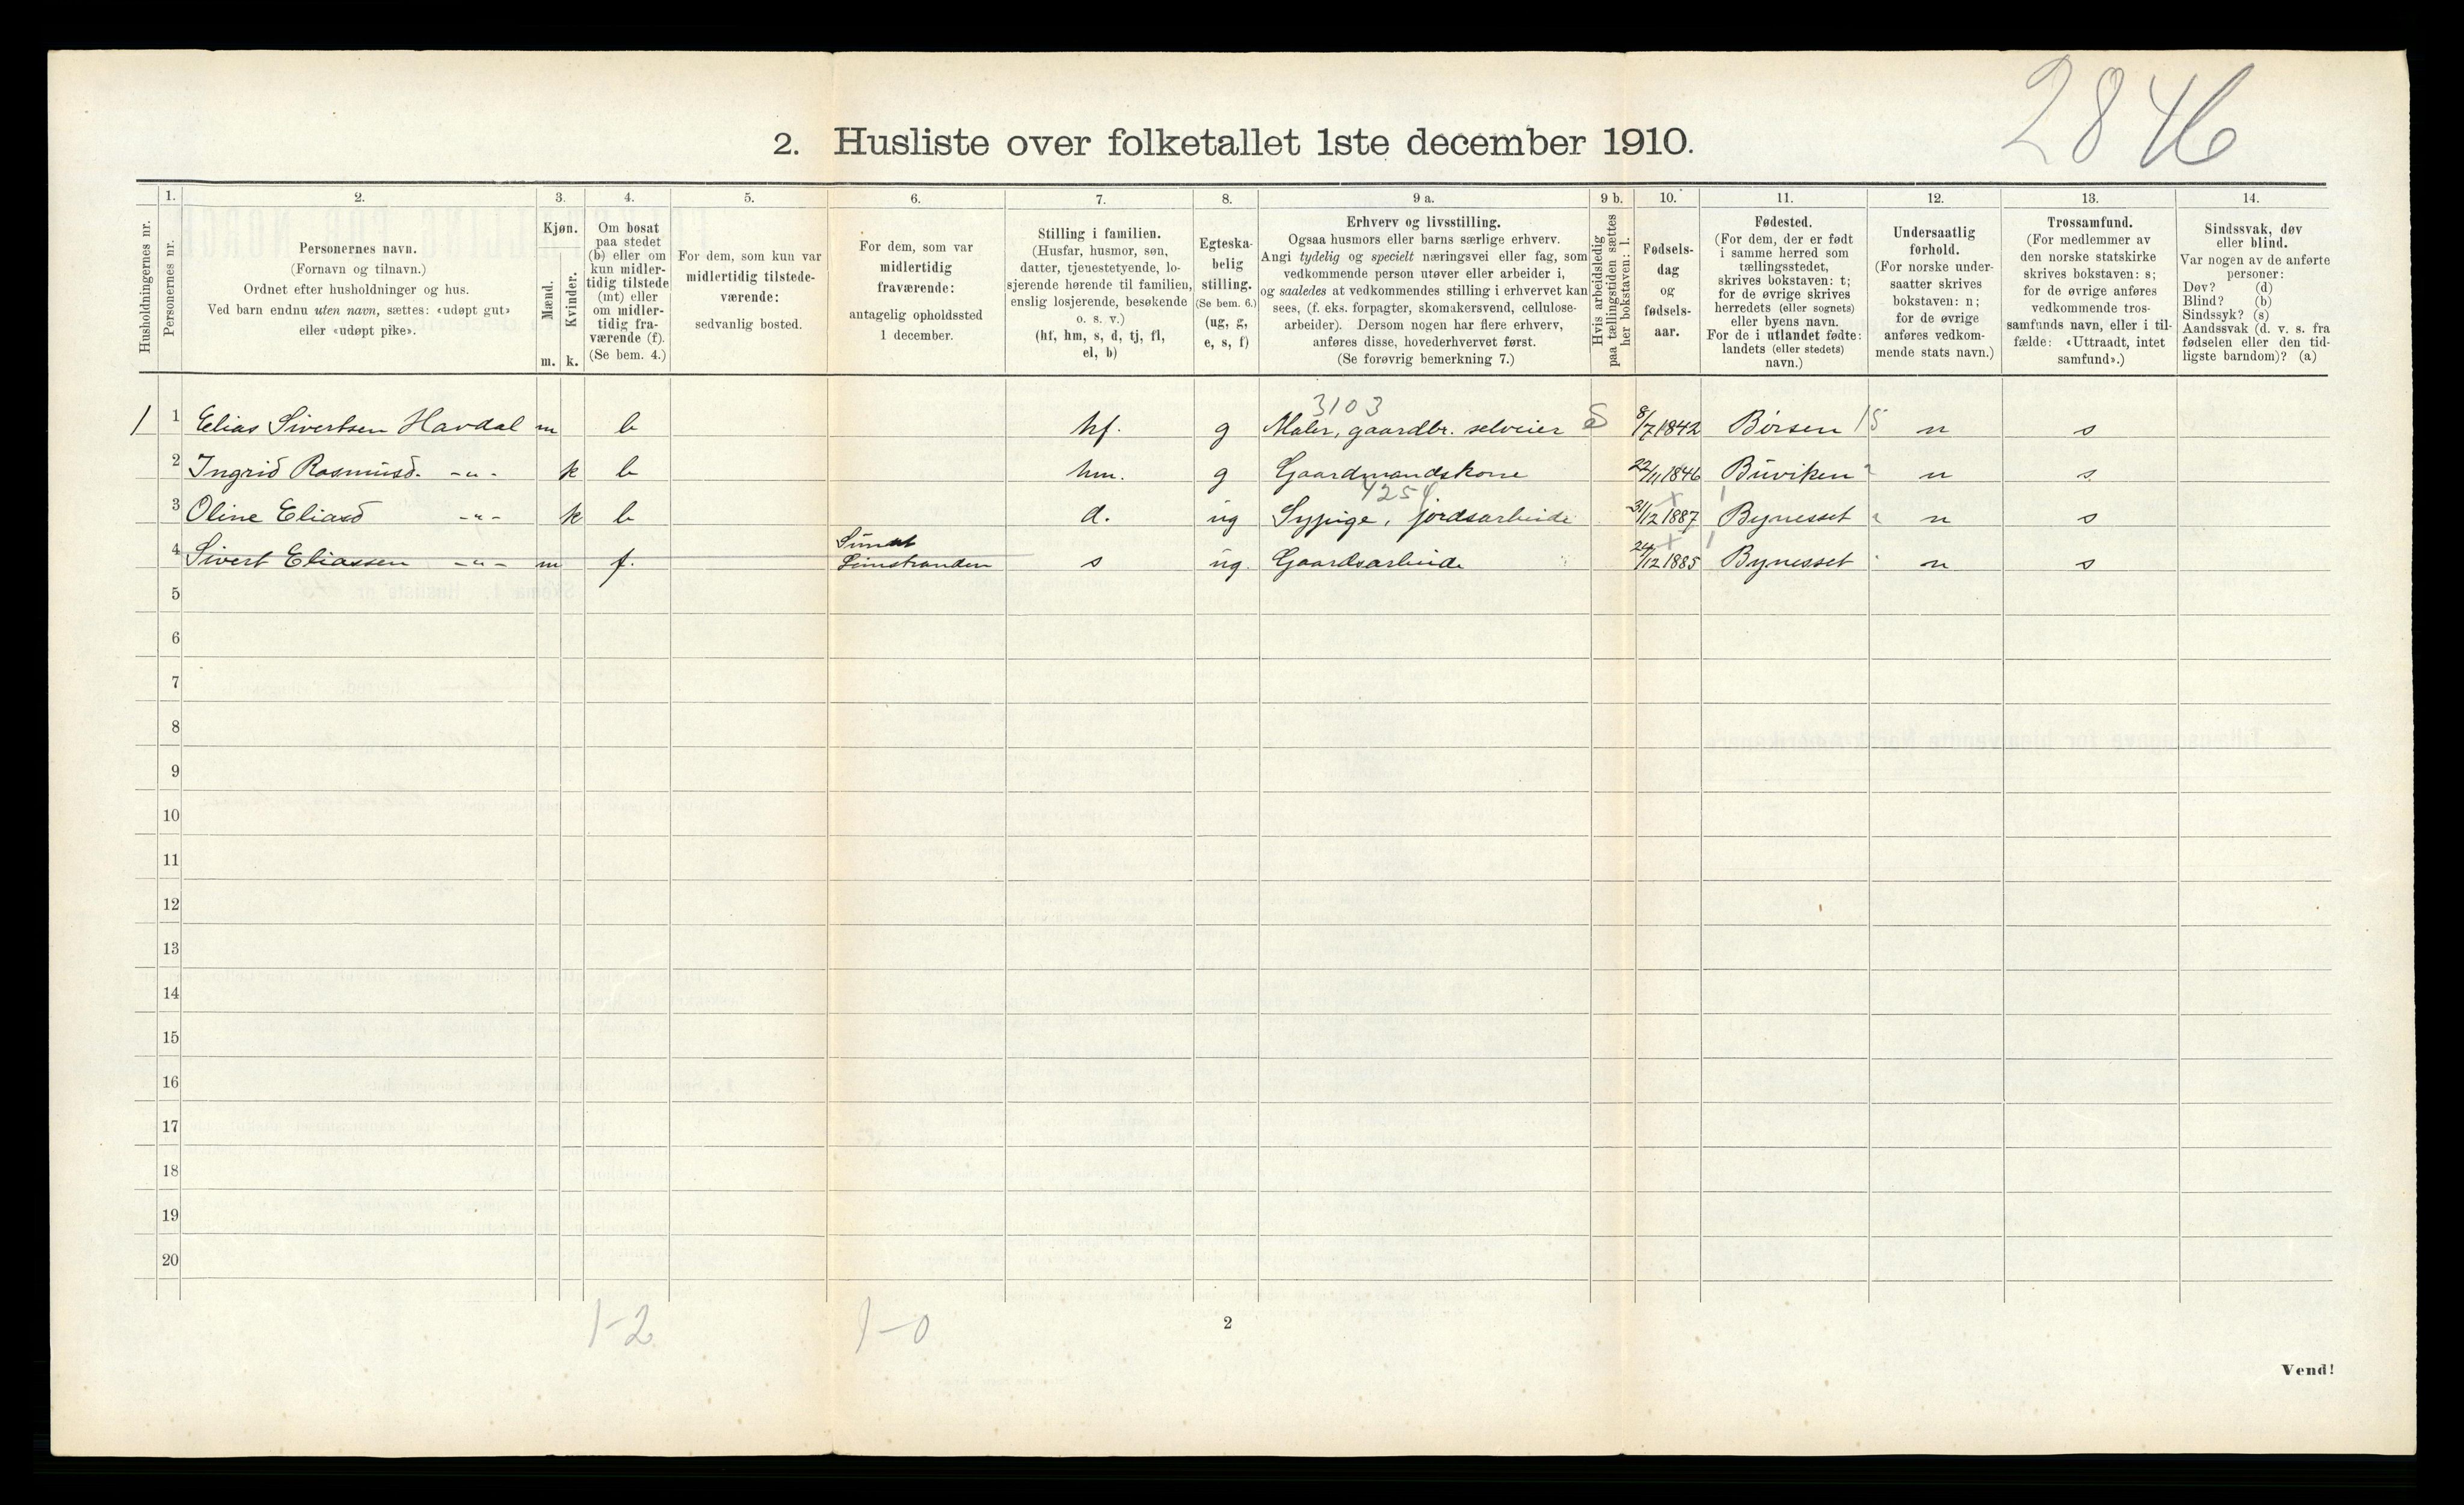 2846
2. Husliste over folketallet 1ste december 1910.
Husholdningernes nr.
1.
Personernes nr.
2.
Personernes navn.
(Fornavn og tilnavn.)
Ordnet efter husholdninger og hus.
Ved barn endnu uten navn, sættes: «udøpt gut»
eller «udøpt pike».
3.
Kjøn.
Mænd.
Kvinder.
m. k.
4.
Om bosat
paa stedet
(b) eller om
kun midler-
tidig tilstede
(mt) eller
om midler-
tidig fra-
værende (f).
(Se bem. 4.)
5.
For dem, som kun var
midlertidig tilstede-
værende:
sedvanlig bosted.
6.
For dem, som var
midlertidig
fraværende:
antagelig opholdssted
1 december.
7.
Stilling i familien.
(Husfar, husmor, søn,
datter, tjenestetyende, lo-
sjerende hørende til familien,
enslig losjerende, besøkende
o. s. v.)
(hf, hm, s, d, tj, fl,
el, b)
8.
Egteska-
belig
stilling.
(Se bem. 6.)
(ug, g,
e, s, f)
9 a.
Erhverv og livsstilling.
Ogsaa husmors eller barns særlige erhverv.
Angi tydelig og specielt næringsvei eller fag, som
vedkommende person utøver eller arbeider i,
og saaledes at vedkommendes stilling i erhvervet kan
sees, (f. eks. forpagter, skomakersvend, cellulose-
arbeider). Dersom nogen har flere erhverv,
anføres disse, hovederhvervet først.
(Se forøvrig bemerkning 7.)
9 b.
Hvis arbeidsledig
paa tællingstiden sættes
her bokstaven: l.
10.
Fødsels-
dag
og
fødsels-
aar.
11.
Fødested.
(For dem, der er født
i samme herred som
tællingsstedet,
skrives bokstaven: t;
for de øvrige skrives
herredets (eller sognets)
eller byens navn.
For de i utlandet fødte:
landets (eller stedets)
navn.)
12.
Undersaatlig
forhold.
(For norske under-
saatter skrives
bokstaven: n;
for de øvrige
anføres vedkom-
mende stats navn.)
13.
Trossamfund.
(For medlemmer av
den norske statskirke
skrives bokstaven: s;
for de øvrige anføres
vedkommende tros-
samfunds navn, eller i til-
fælde: «Uttraadt, intet
samfund».)
14.
Sindssvak, døv
eller blind.
Var nogen av de anførte
personer:
Døv? (d)
Blind? (b)
Sindssyk? (s)
Aandssvak (d. v. s. fra
fødselen eller den tid-
ligste barndom)? (a)
3103
1 1 Elias Sivertsen Havdal m b hf. g Maler, gaardbr. selveier 8/7 1842 Børsen 15 n s
2 Ingrid Rasmusd. -"- k b hm. g Gaardmandskone 22/11 1846 Buviken n s.
4254
3 Oline Eliasd -"- k b d. ug Sypige, jordsarbeide 31/12 1887 Bynesset n s
4 Sivert Eliassen -"- m f. Leinstranden s ug. Gaardsarbeide 24/12 1885 Bynesset n s
5
6
7
8
9
10
11
12
13
14
15
16
17
18
19
20
1-2 1-0
2
Vend!